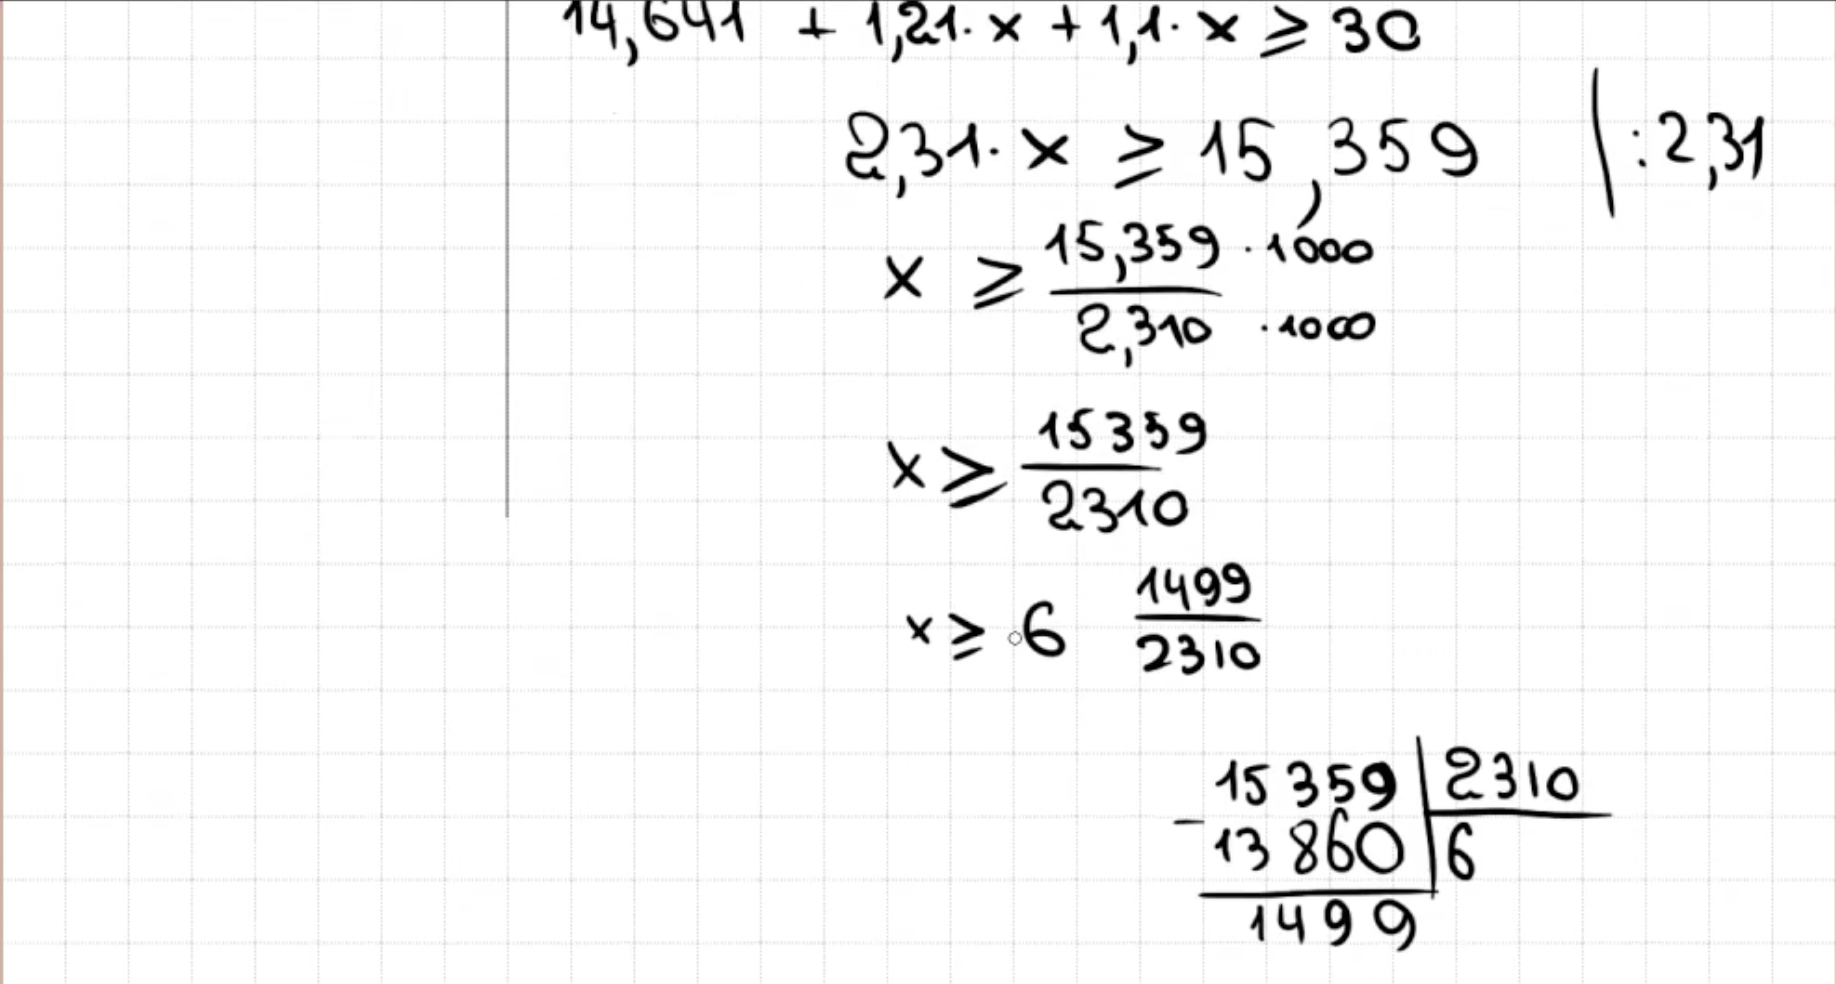 14,641 + 1,21·x + 1,1·x ≥ 30
2,31·x ≥ 15,359 | :2,31
x ≥ 15,359 ·1000 / 2,310 ·1000
x ≥ 15359 / 2310
x ≥ 6 1499 / 2310
15359 | 2310
- 13860 | 6
1499